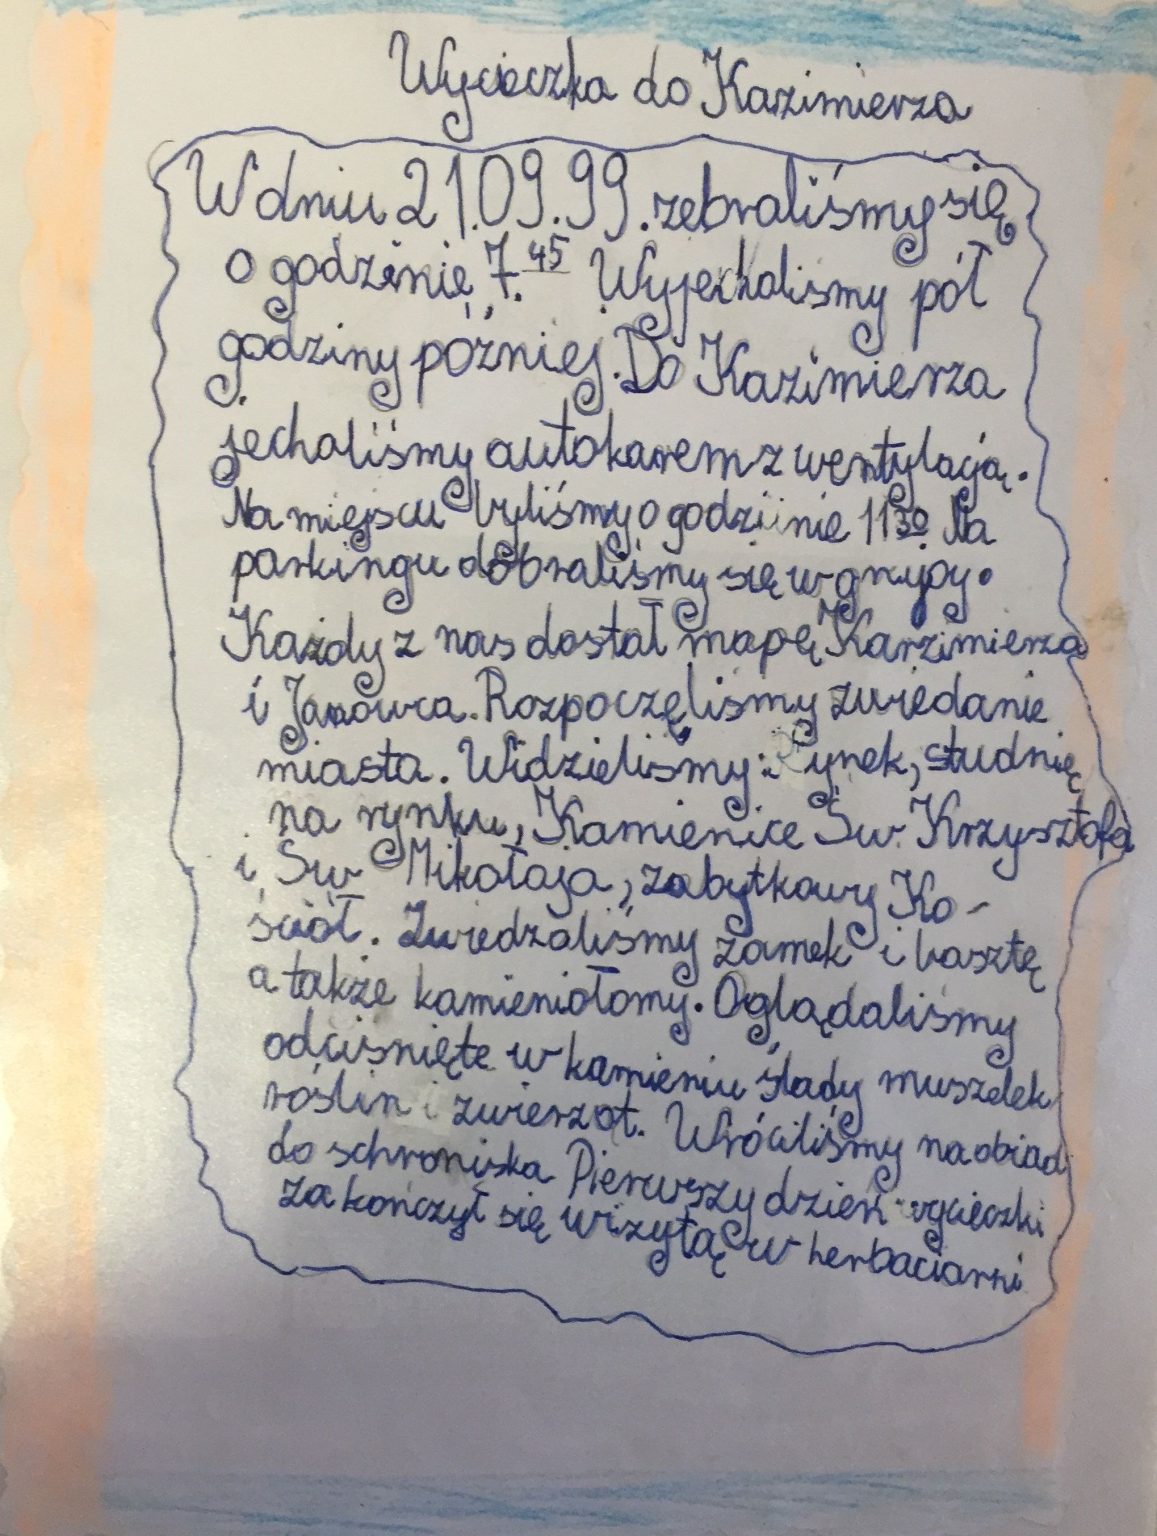 Wycieczka do Kazimierza
W dniu 21.09.99. zebraliśmy się
o godzinie 7.45 Wyjechaliśmy pół
godziny później. Do Kazimierza
jechaliśmy autokarem z wentylacją.
Na miejscu byliśmy o godzinie 1130 Na
parkingu dobraliśmy się w grupy.
Każdy z nas dostał mapę Kazimierza
i Janowca. Rozpoczęliśmy zwiedanie
miasta. Widzieliśmy: Rynek, studnię
na rynku, Kamienice Św. Krzysztofa
i Św Mikołaja, zabytkowy Ko-
ściół. Zwiedzaliśmy zamek i basztę
a także kamieniołomy. Oglądaliśmy
odciśnięte w kamieniu ślady muszelek
roślin i zwierząt. Wróciliśmy na obiad
do schroniska Pierwszy dzień wycieczki
zakończył się wizytą w herbaciarni